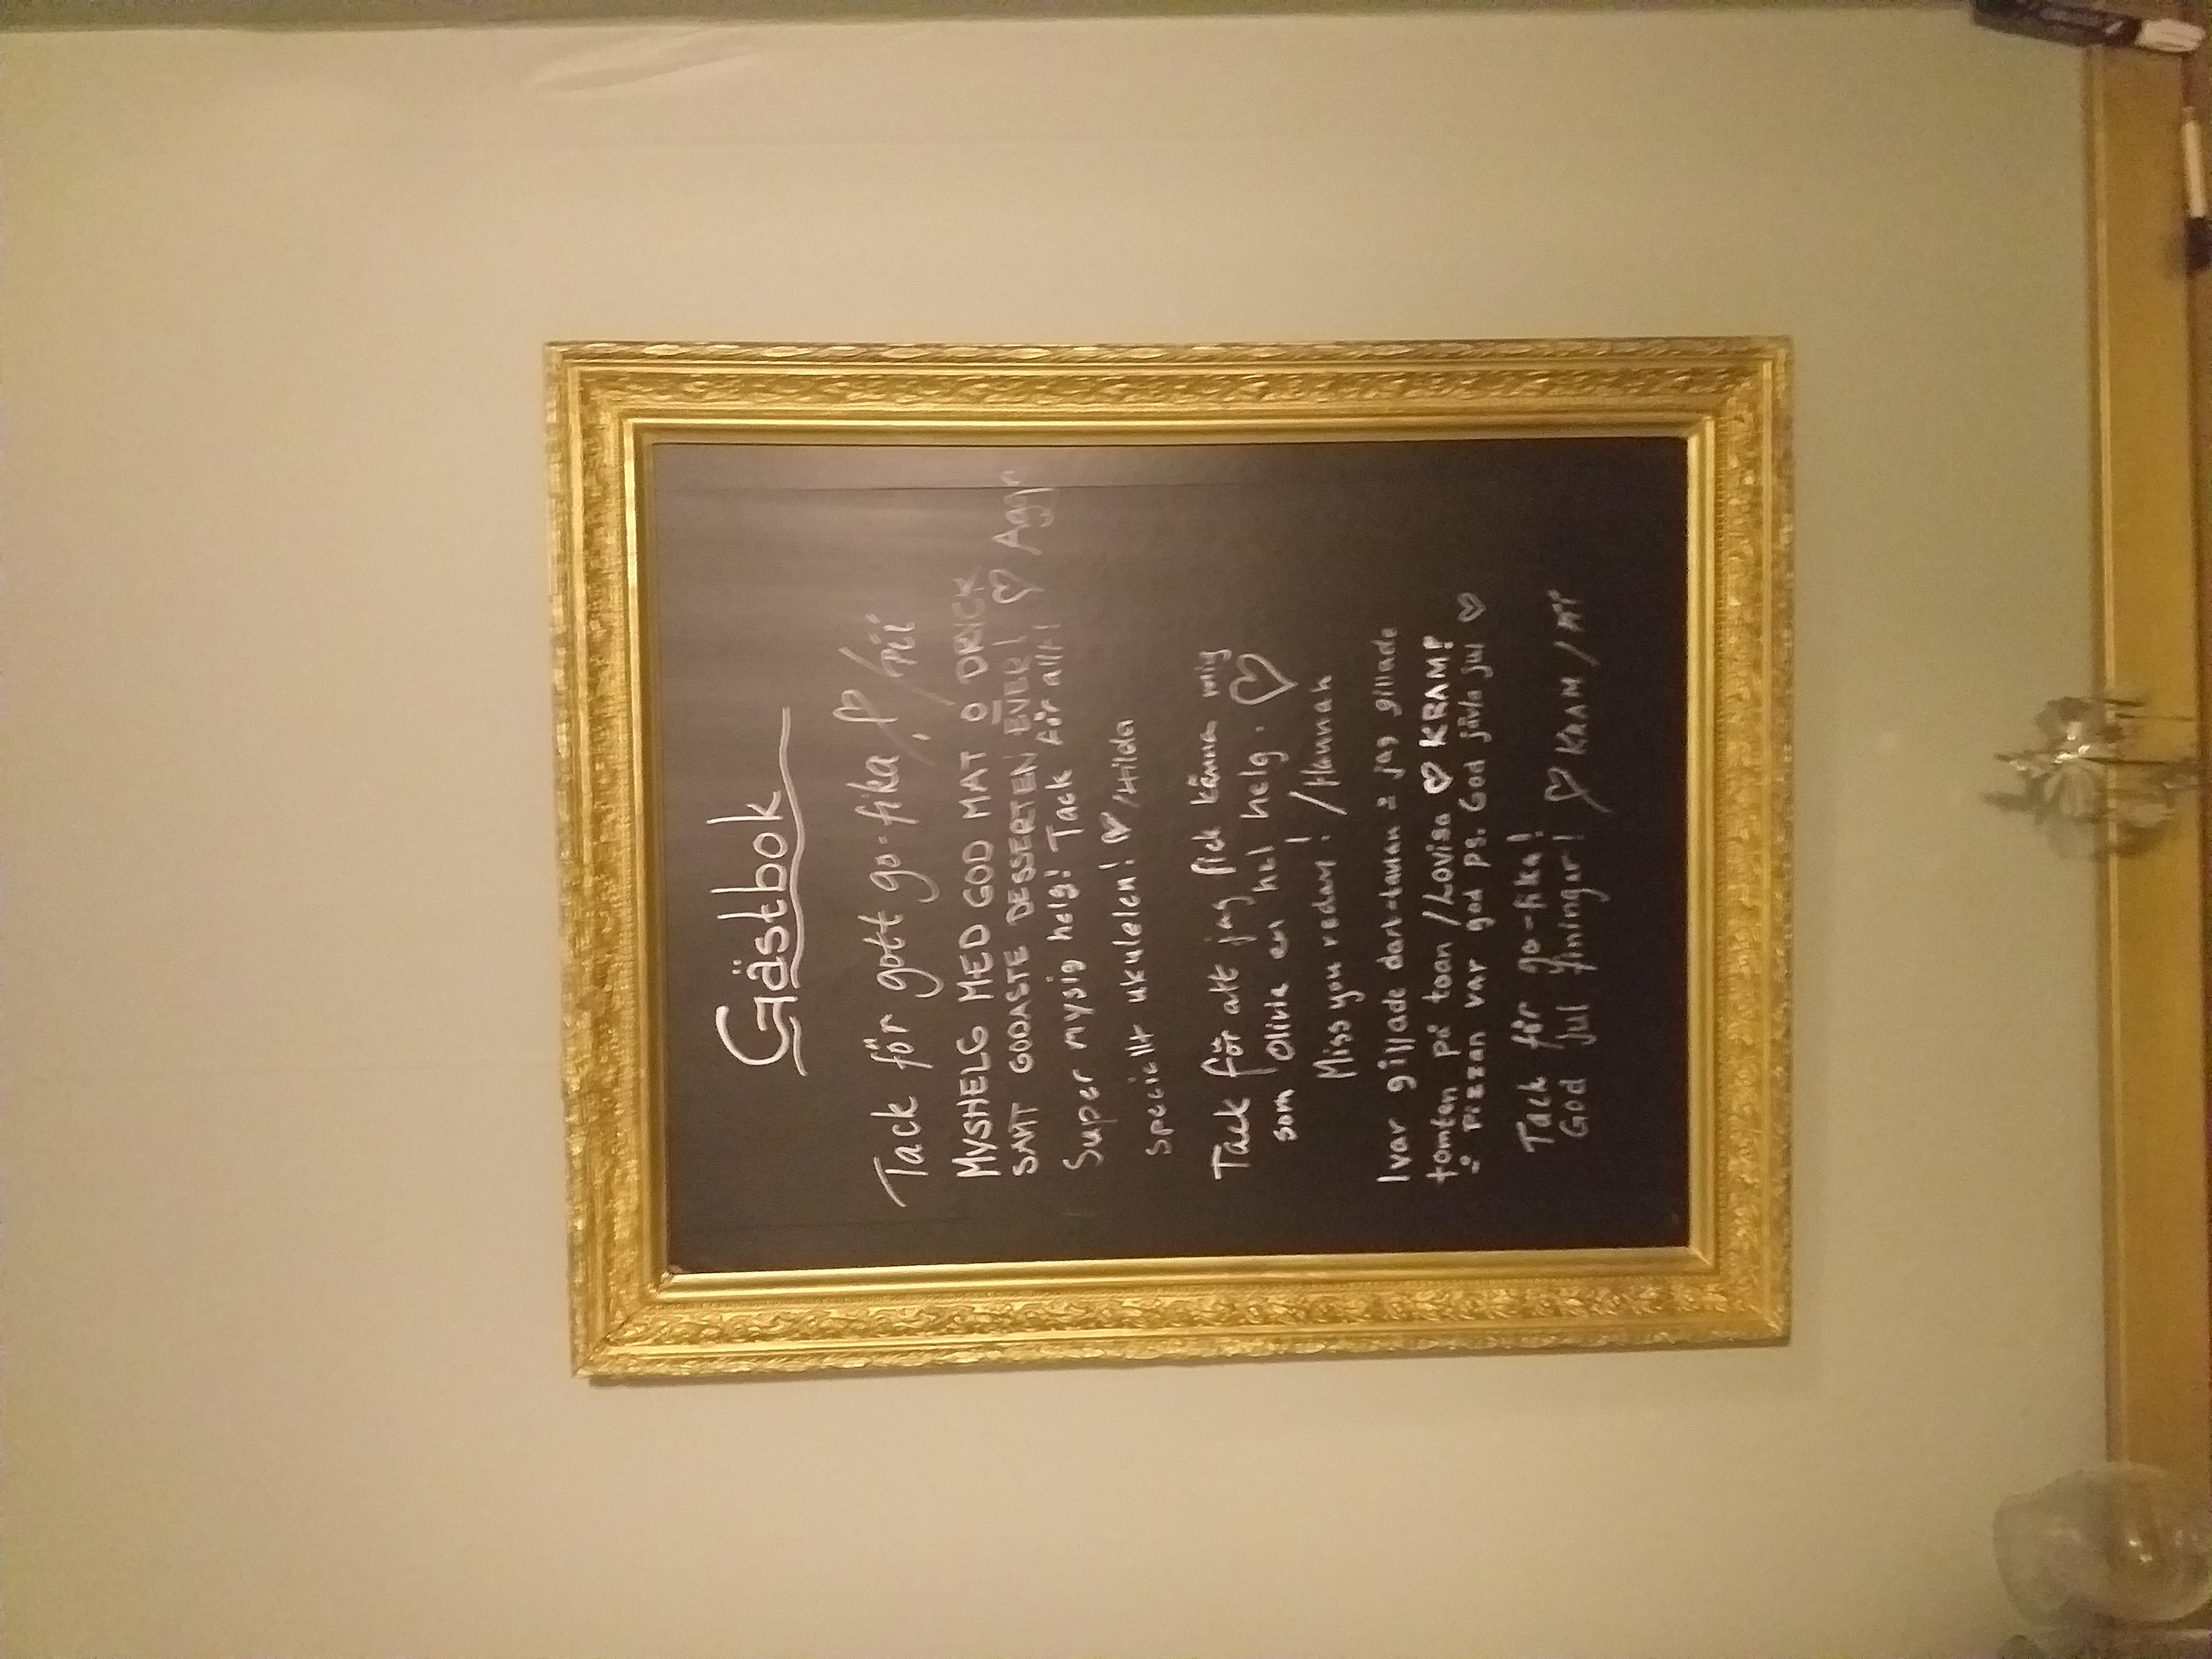 Gästbok
Tack för gott go-fika! /Pii
MYSHELG MED GOD MAT O DRICK
SAMT GODASTE DESSERTEN EVER! ♡
Super mysig helg! Tack för allt!
speciellt ukulelen! ♥ /Hilda
Tack för att jag fick känna mig
som Olivia en hel helg. ♡
Miss you redan! /Hannah
Ivar gillade dart-tavlan å jag gillade
tomten på toan /Lovisa ♡ KRAM!
å Pizzan var god ps. God jävla jul ♡
Tack för go-fika!
God Jul finingar! ♡ KRAM /